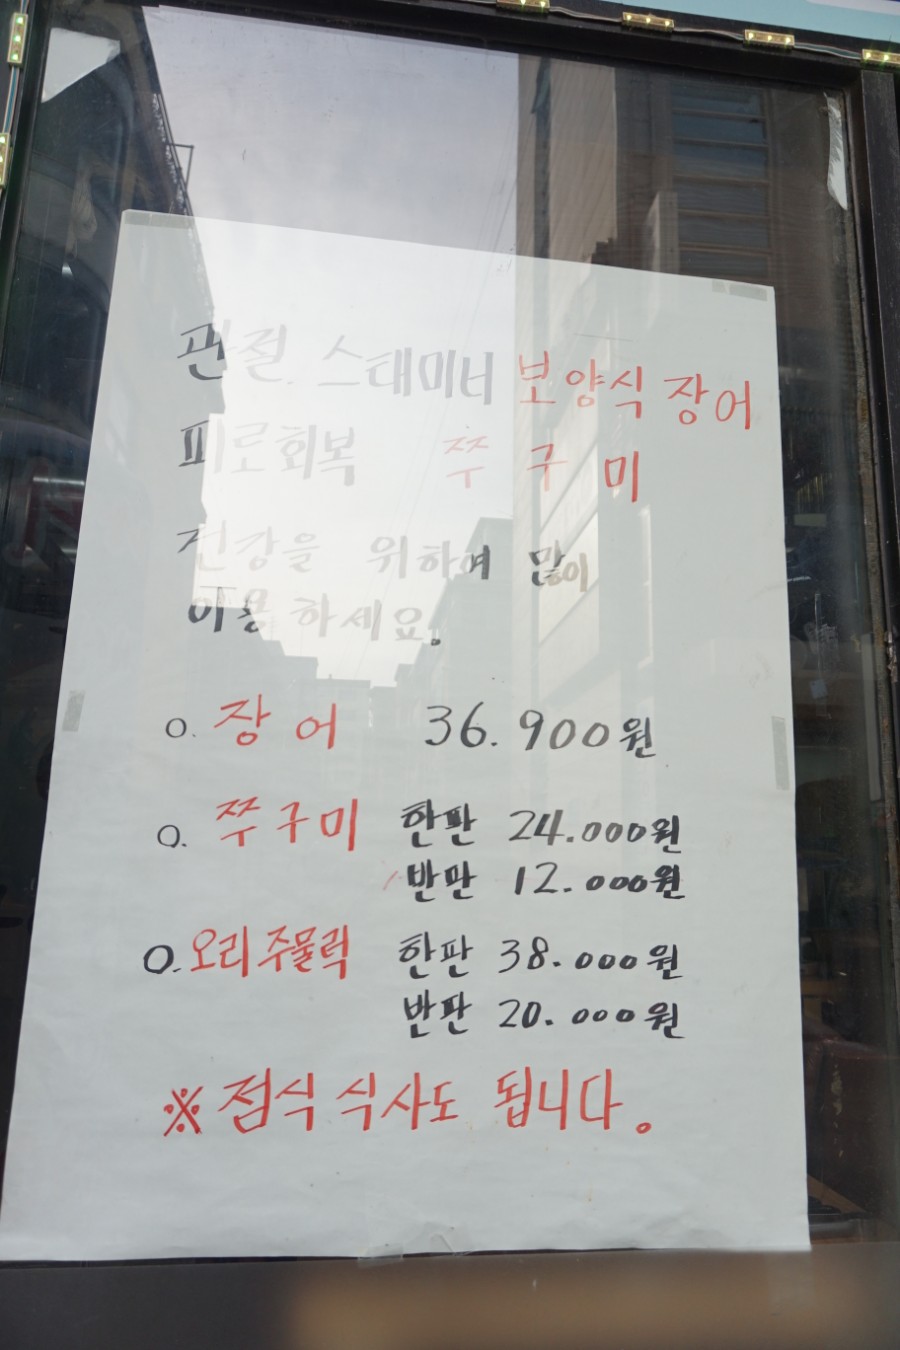 관절. 스태미너 보양식 장어
피로회복 쭈구미
건강을 위하여 많이
이용하세요.
o. 장어 36.900원
o. 쭈구미 한판 24.000원
반만 12.000원
o. 오리주물럭 한판 38.000원
반판 20.000원
※ 점식 식사도 됩니다.